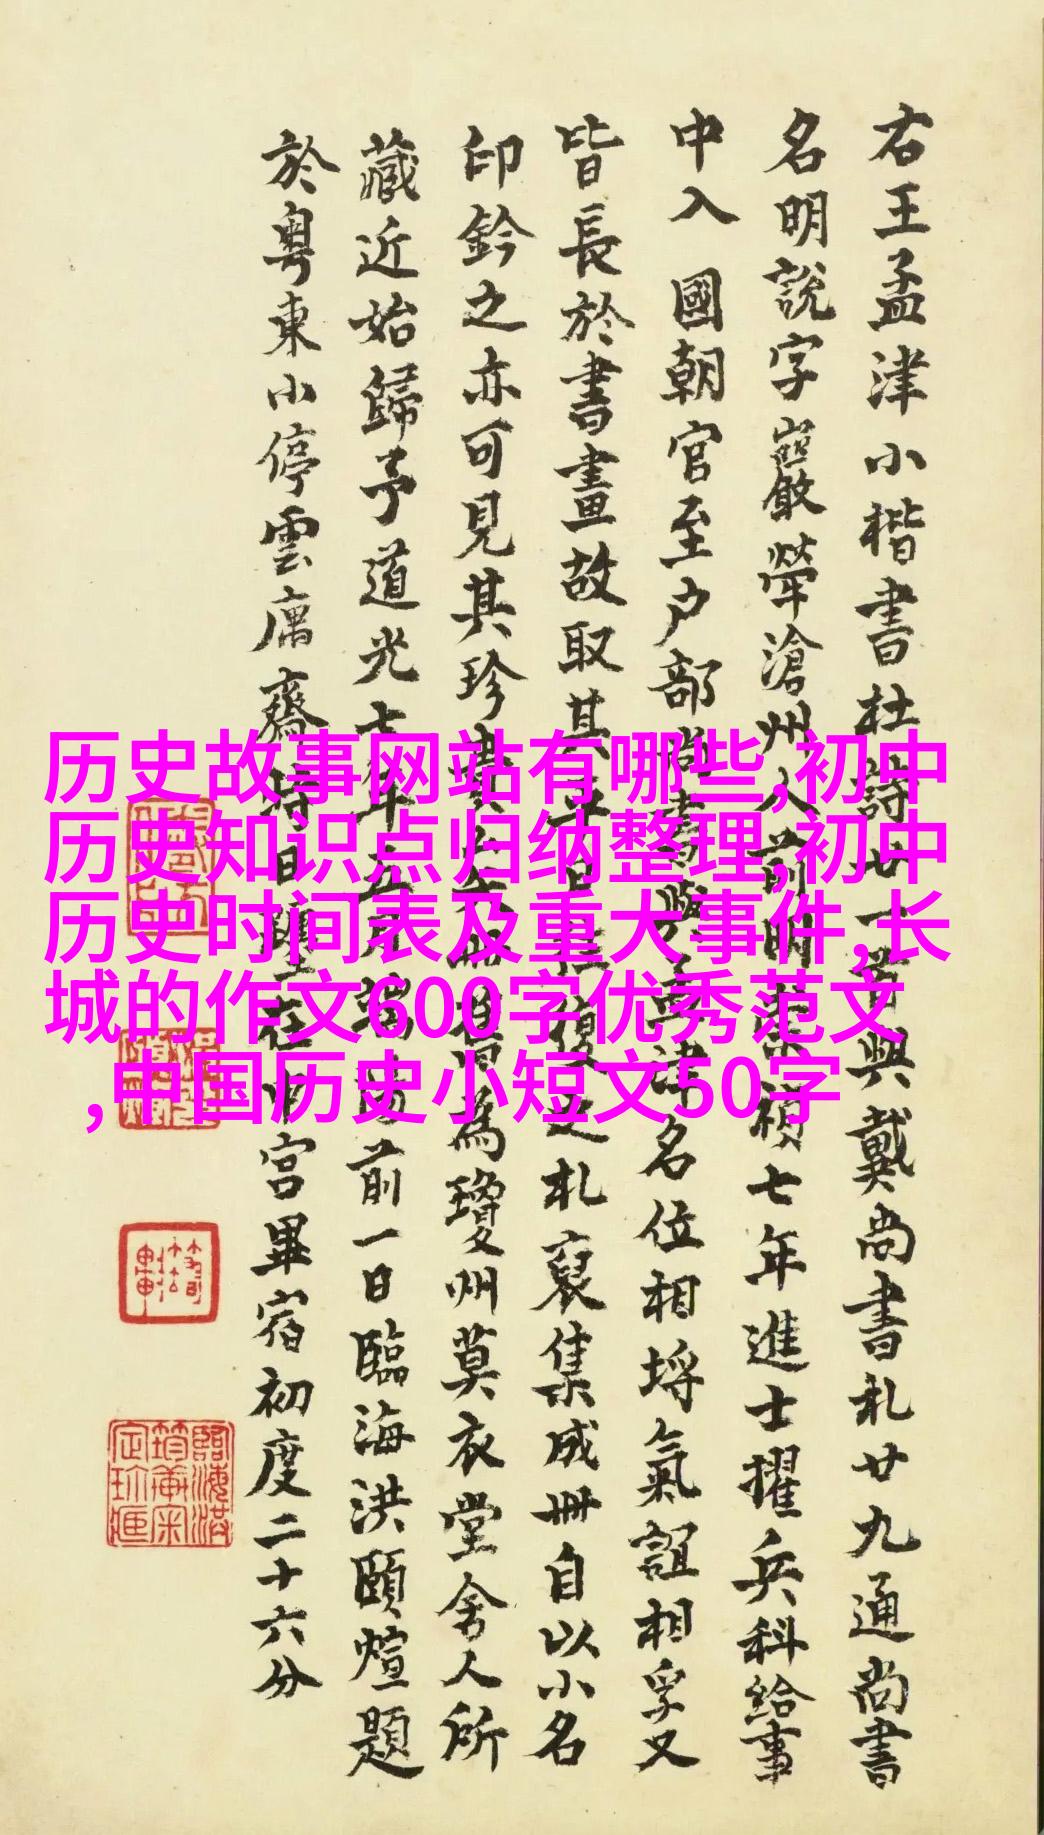 右王孟津小楷書杜詩廿一首與戴尚書札廿九通尚書
名明說字巖犖滄州人前明崇禎七年進士擢兵科給事
中入國朝官至户部尚書與孟津名位相埒氣誼相孚又
皆長於書畫故取其往復之札裒集成冊自以小名
印鈐之亦可見其珍為瓊州莫衣堂舍人所
藏近始歸予道光七年五月前一日臨海洪頤煊題
於粵東小停雲庽齋時日躔在宮畢宿初度二十六分
历史故事网站有哪些,初中
历史知识点归纳整理,初中
历史时间表及重大事件,长
城的作文600字优秀范文
,中国历史小短文50字